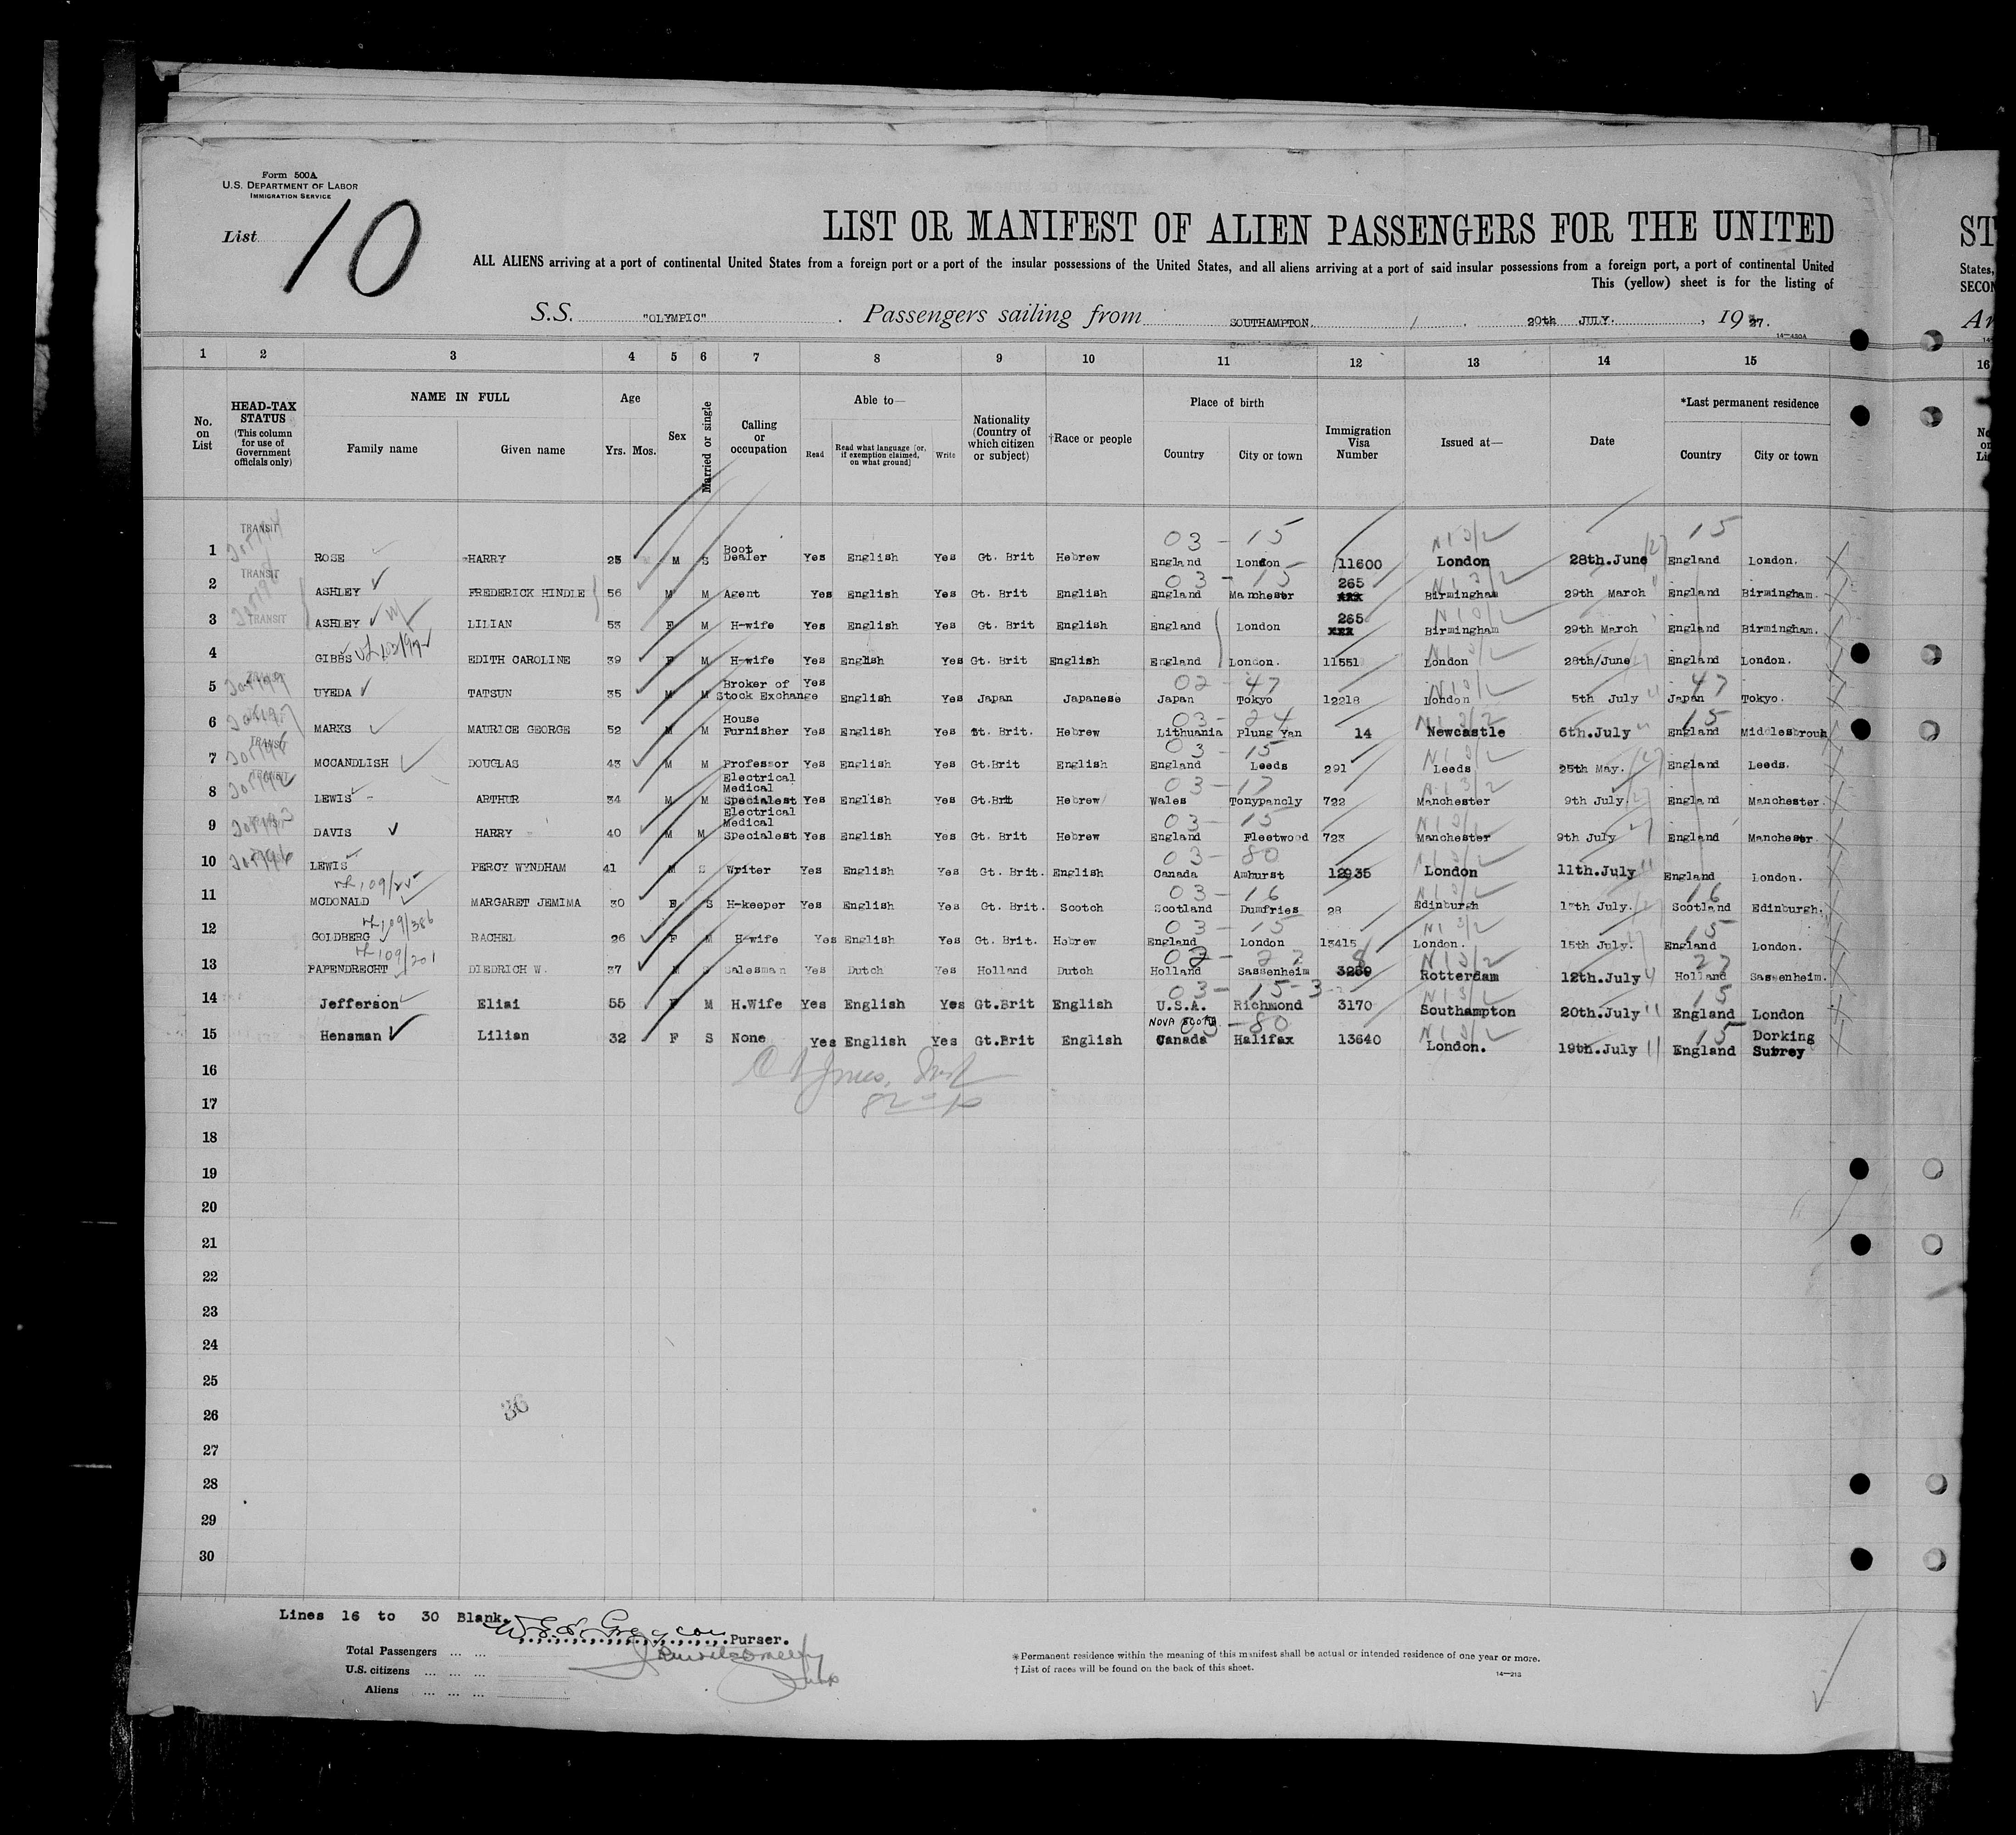 Form 500A
U.S. DEPARTMENT OF LABOR
IMMIGRATION SERVICE
List 10
LIST OR MANIFEST OF ALIEN PASSENGERS FOR THE UNITED
ST
ALL ALIENS arriving at a port of continental United States from a foreign port or a port of the insular possessions of the United States, and all aliens arriving at a port of said insular possessions from a foreign port, a port of continental United
States,
This (yellow) sheet is for the listing of
SECON
S.S. "OLYMPIC". Passengers sailing from SOUTHAMPTON. 20th JULY. , 1927.
Ar
14—430A
1 2 3 4 5 6 7 8 9 10 11 12 13 14 15 16
No. on List
HEAD-TAX STATUS (This column for use of Government officials only)
NAME IN FULL
Family name Given name
Age
Yrs. Mos.
Sex
Married or single
Calling or occupation
Able to—
Read Read what language [or, if exemption claimed, on what ground] Write
Nationality (Country of which citizen or subject)
†Race or people
Place of birth
Country City or town
Immigration Visa Number
Issued at—
Date
*Last permanent residence
Country City or town
TRANSIT 03 - 15 15
1 ROSE HARRY 25 M S Boot Dealer Yes English Yes Gt. Brit Hebrew England London 11600 London 28th.June England London.
TRANSIT 03 - 15
2 ASHLEY FREDERICK HINDLE 56 M M Agent Yes English Yes Gt. Brit English England Manchester 265 Birmingham 29th March England Birmingham.
TRANSIT
3 ASHLEY LILIAN 53 F M H-wife Yes English Yes Gt. Brit English England London 265 Birmingham 29th March England Birmingham.
4 GIBBS EDITH CAROLINE 39 F M H-wife Yes English Yes Gt. Brit English England London. 11551 London 28th/June England London.
02 - 47 47
5 UYEDA TATSUN 35 M M Broker of Stock Exchange Yes English Yes Japan Japanese Japan Tokyo 12218 London 5th July Japan Tokyo.
03 - 24 15
6 MARKS MAURICE GEORGE 52 M M House Furnisher Yes English Yes Gt. Brit. Hebrew Lithuania Plung Yan 14 Newcastle 6th.July England Middlesbrouh
TRANSIT 03 - 15
7 MCCANDLISH DOUGLAS 43 M M Professor Yes English Yes Gt.Brit English England Leeds 291 Leeds 25th May. England Leeds.
03 - 17
8 LEWIS ARTHUR 34 M M Electrical Medical Specialest Yes English Yes Gt.Brit Hebrew Wales Tonypancly 722 Manchester 9th July. England Manchester
03 - 15
9 DAVIS HARRY 40 M M Electrical Medical Specialest Yes English Yes Gt. Brit Hebrew England Fleetwood 723 Manchester 9th July England Manchester.
03 - 80
10 LEWIS PERCY WYNDHAM 41 M S Writer Yes English Yes Gt. Brit. English Canada Amhurst 12935 London 11th.July England London.
03 - 16 16
11 MCDONALD MARGARET JEMIMA 30 F S H-keeper Yes English Yes Gt. Brit. Scotch Scotland Dumfries 28 Edinburgh 13th July. Scotland Edinburgh.
109/386 03 - 15 15
12 GOLDBERG RACHEL 26 F M H-wife Yes English Yes Gt. Brit. Hebrew England London 13415 London. 15th July. England London.
109/201 02 - 27 27
13 PAPENDRECHT DIEDRICH W. 37 M S Salesman Yes Dutch Yes Holland Dutch Holland Sassenheim Rotterdam 12th.July Holland Sassenheim.
03 - 15-3 15
14 Jefferson Eliai 55 F M H.Wife Yes English Yes Gt.Brit English U.S.A. Richmond 3170 Southampton 20th.July England London
NOVA SCOTIA 03 - 80 15
15 Hensman Lilian 32 F S None Yes English Yes Gt.Brit English Canada Halifax 13640 London. 19th.July England Dorking Surrey
16
17
18
19
20
21
22
23
24
25
26
27
28
29
30
36
Lines 16 to 30 Blank.
Purser.
Total Passengers ... ...
U.S. citizens ... ... ...
Aliens ... ... ...
*Permanent residence within the meaning of this manifest shall be actual or intended residence of one year or more.
†List of races will be found on the back of this sheet.
14—213